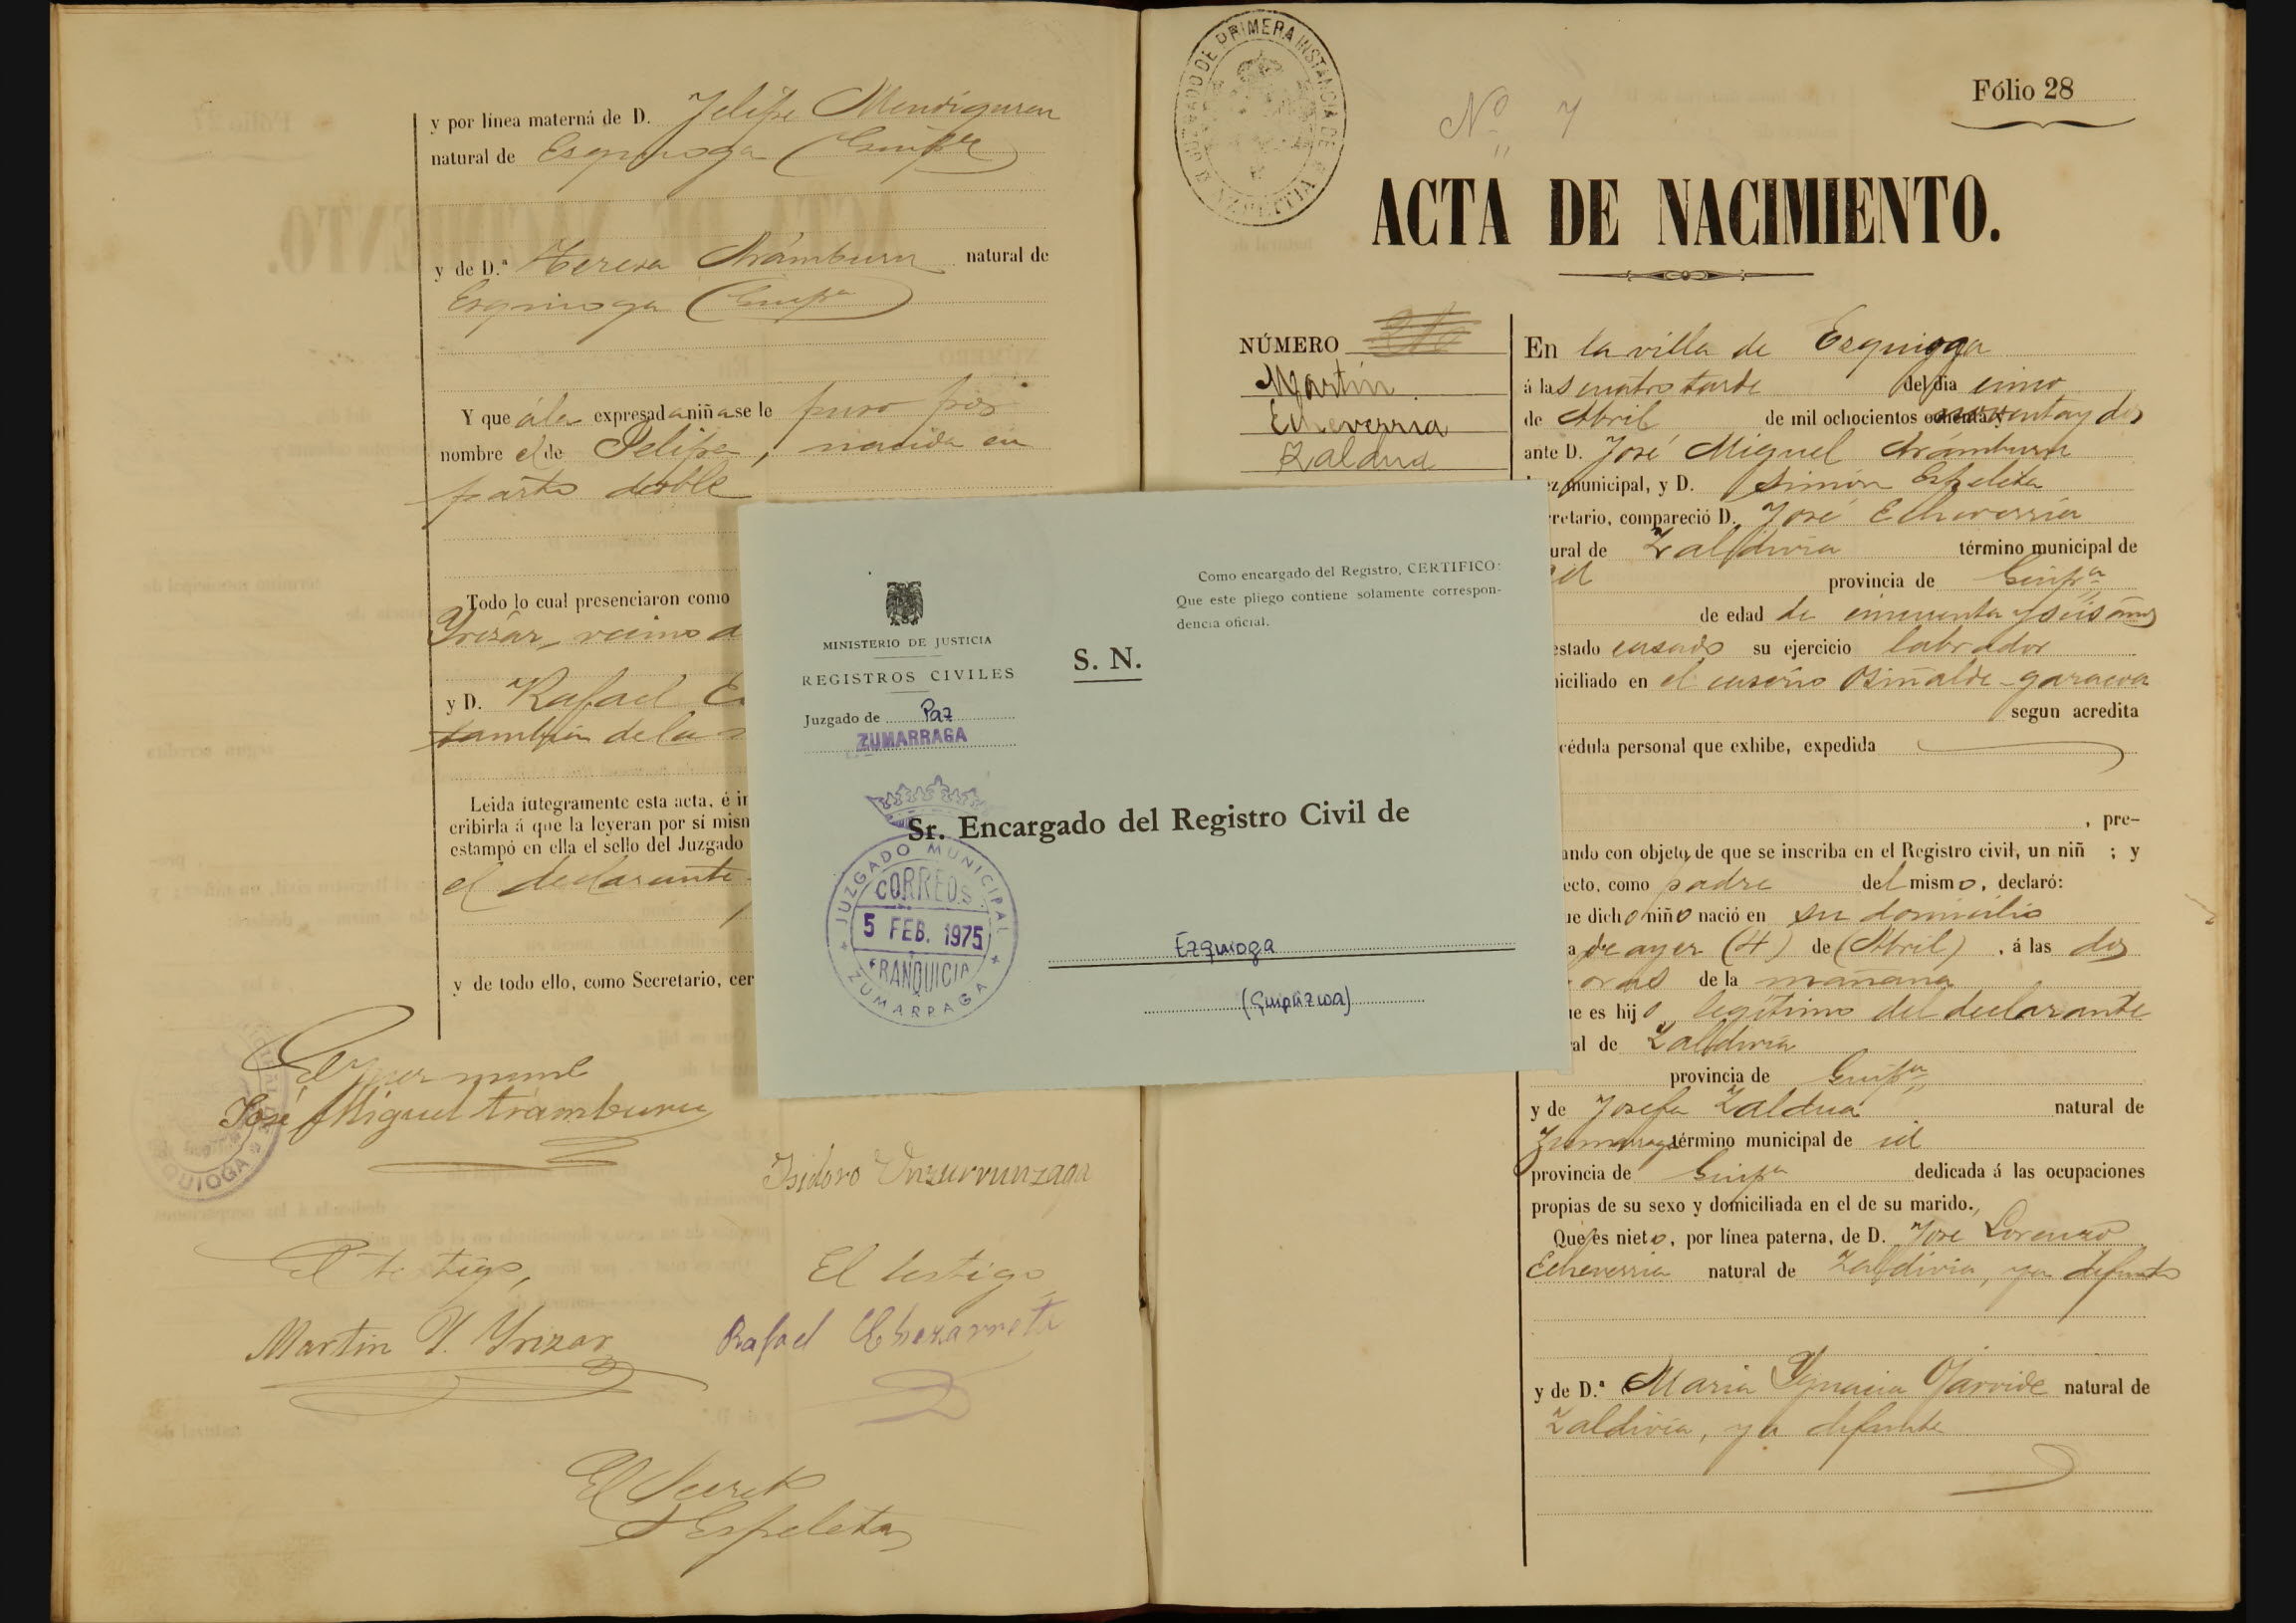 y por línea materna de D. Felipe Mendiguren
natural de Esquioga (Guipª)
y de D.ª Teresa Arámburu natural de
Esquioga (Guipª)
Y que á la expresada niña se le puso por
nombre el de Felipa, nacida en
parto doble
Todo lo cual presenciaron como
Yrizar, vecino d
y D. Rafael E
también de la
Leida integramente esta acta, é in
cribirla á que la leyeran por sí mism
estampó en ella el sello del Juzgado
el declarante
y de todo ello, como Secretario, cer
José Miguel Aramburu
QUIOGA
Isidoro Unzurrunzaga
El testigo,
Martin Y. Yrizar
El testigo
Rafael Echezarreta
El Secret
Espeleta
JUZGADO DE PRIMERA INSTANCIA DE AZPEITIA
Nº 7
Fólio 28
ACTA DE NACIMIENTO.
NÚMERO
Martín
Echeverria
Zaldua
En la villa de Ezquioga
á las cuatro tarde del dia cinco
de Abril de mil ochocientos noventa y dos
ante D. José Miguel Arámburu
ez municipal, y D. Simón Espeleta
retario, compareció D. José Echeverria
ural de Zaldivia término municipal de
id provincia de Guipª
de edad de cincuenta y seis años
estado casado su ejercicio labrador
iciliado en el caserio garacoa
segun acredita
cédula personal que exhibe, expedida
, pre-
ando con objeto de que se inscriba en el Registro civil, un niñ ; y
ecto, como padre del mismo, declaró:
ue dicho niño nació en su domicilio
a de ayer (4) de (Abril), á las dos
oras de la mañana
ue es hijo legítimo del declarante
al de Zaldivia
provincia de Guipª
y de Josefa Zaldua natural de
Zumarraga término municipal de id
provincia de Guipª dedicada á las ocupaciones
propias de su sexo y domiciliada en el de su marido.
Que es nieto, por línea paterna, de D. José Lorenzo
Echeverria natural de Zaldivia, ya difunto
y de D.ª Maria Ygnacia Garvide natural de
Zaldivia, ya difunta
MINISTERIO DE JUSTICIA
REGISTROS CIVILES
Juzgado de Paz
ZUMARRAGA
Como encargado del Registro, CERTIFICO:
Que este pliego contiene solamente correspon-
dencia oficial.
S. N.
Sr. Encargado del Registro Civil de
Ezquioga
(Guipúzcoa)
JUZGADO MUNICIPAL
CORREOS
5 FEB. 1975
FRANQUICIA
ZUMARRAGA